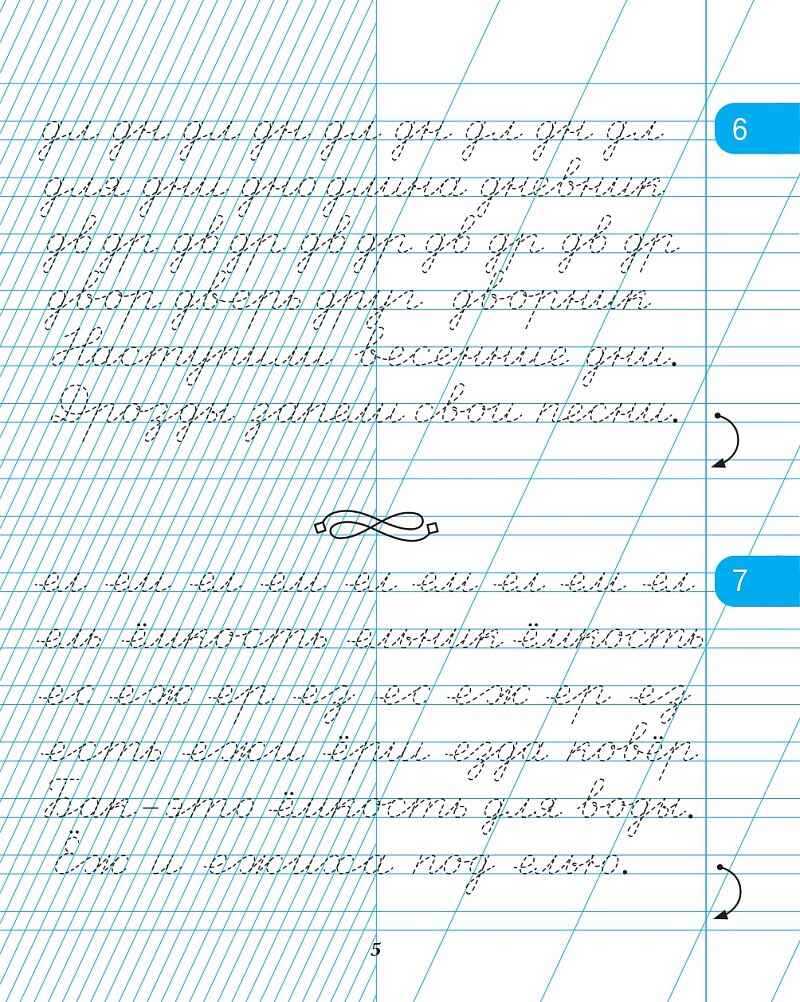 дл дн дл дн дл дн дл дн дл
6
для дни дно длина дневник
дв др дв др дв др дв др дв др
двор дверь друг дворник
Наступили весенние дни.
Дрозды запели свои песни.
ел ем ел ем ел ем ел ем ел
7
ель ёмкость ельник ёмкость
ес еж ер ез ес еж ер ез
есть ежи ёрш езда ковёр
Бак – это ёмкость для воды.
Ёж и ежиха под елью.
5